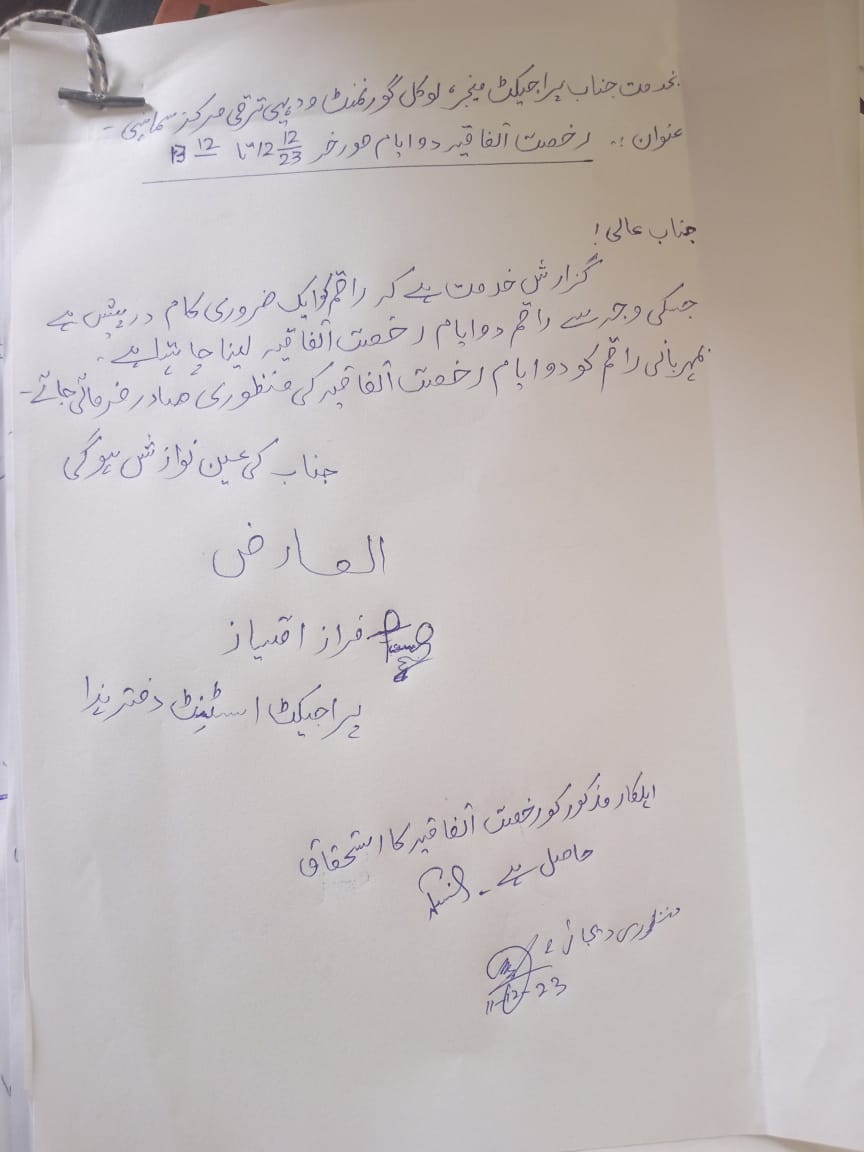 بخدمت جناب پراجیکٹ منیجر، لوکل گورنمنٹ و دیہی ترقی مرکز سماہنی -
عنوان :. رخصت اتفاقیہ دو ایام مورخہ 12 12/23 تا 13 12
جناب عالی!
گزارش خدمت ہے کہ راقم کو ایک ضروری کام درپیش ہے
جسکی وجہ سے راقم دو ایام رخصت اتفاقیہ لینا چاہتا ہے۔
بمہربانی راقم کو دو ایام رخصت اتفاقیہ کی منظوری صادر فرمائی جائے-
جناب کی عین نوازش ہوگی
العارض
فراز امتیاز
پراجیکٹ اسسٹنٹ دفتر ہذا
اہلکار مذکور کو رخصت اتفاقیہ کا استحقاق
حاصل ہے -
منظوری دیجاتی ہے
11-12-23